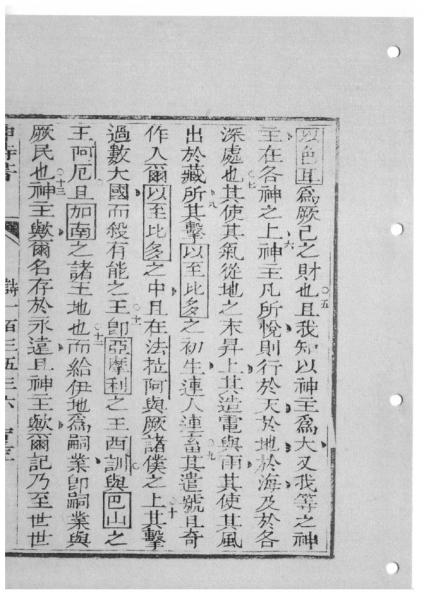 以色耳爲厥己之財也○五且我知以神主爲大又我等之神
主在各神之上○六神主凡所悅則行於天於地於海及於各
深處也○七其使其氣從地之末昇上其造電與雨其使其風
出於藏所○八其擊以至比多之初生連人連畜○九其遣號且奇
作入爾以至比多之中且在法拉阿與厥諸僕之上○十其擊
過數大國而殺有能之王○十一卽亞摩利之王西訓與巴山之
王阿厄且加南之諸王地也○十二而給伊地爲嗣業卽嗣業與
厥民也○十三神主歟爾名存於永遠且神主歟爾記乃至世世